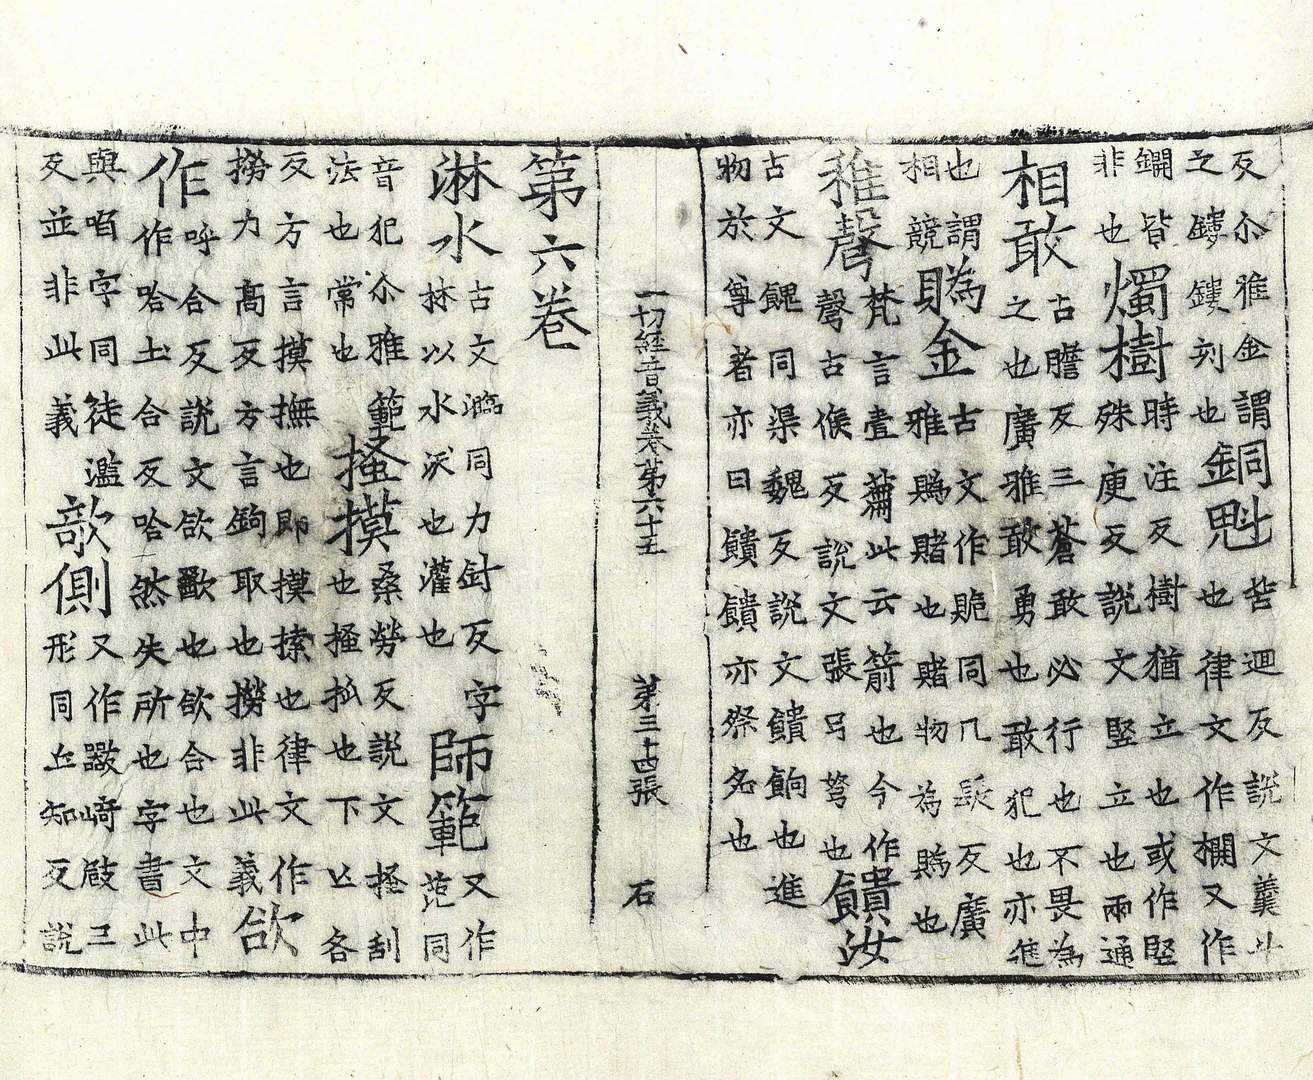 反尒雅金謂
之鏤鏤刻也
銅魁
苦迴反說文羹斗
也律文作欄又作
鐦皆
非也
燭樹
時注反樹猶立也或作竪
殊庾反說文竪立也兩通
相敢
古膽反三蒼敢必行也不畏為
之也廣雅敢勇也敢犯也亦進
也謂
相競
䞈金
古文作同几髲反廣
雅䞈賭也賭物為䞈也
稚彀
梵言壹薾此云箭也今作
彀古候反說文張弓弩也
饋汝
古文餽同渠魏反說文饋餉也進
物於尊者亦曰饋饋亦祭名也
一切經音義卷第六十五
第三十四張
石
第六卷
淋水
古文同力針反字
林以水沃也灌也
師範
又作
笵同
音犯尒雅範
法也常也
搔摸
桑勞反說文搔刮
也搔抓也下亡各
反方言摸撫也即摸㨞也律文作
撈力髙反方言鉤取也撈非此義
欱
作
呼合反說文欱歠也欱合也文中
作哈土合反哈然失所也字書此
與㗖字同徒濫
反並非此義
側
又作崎三
形同丘知反說